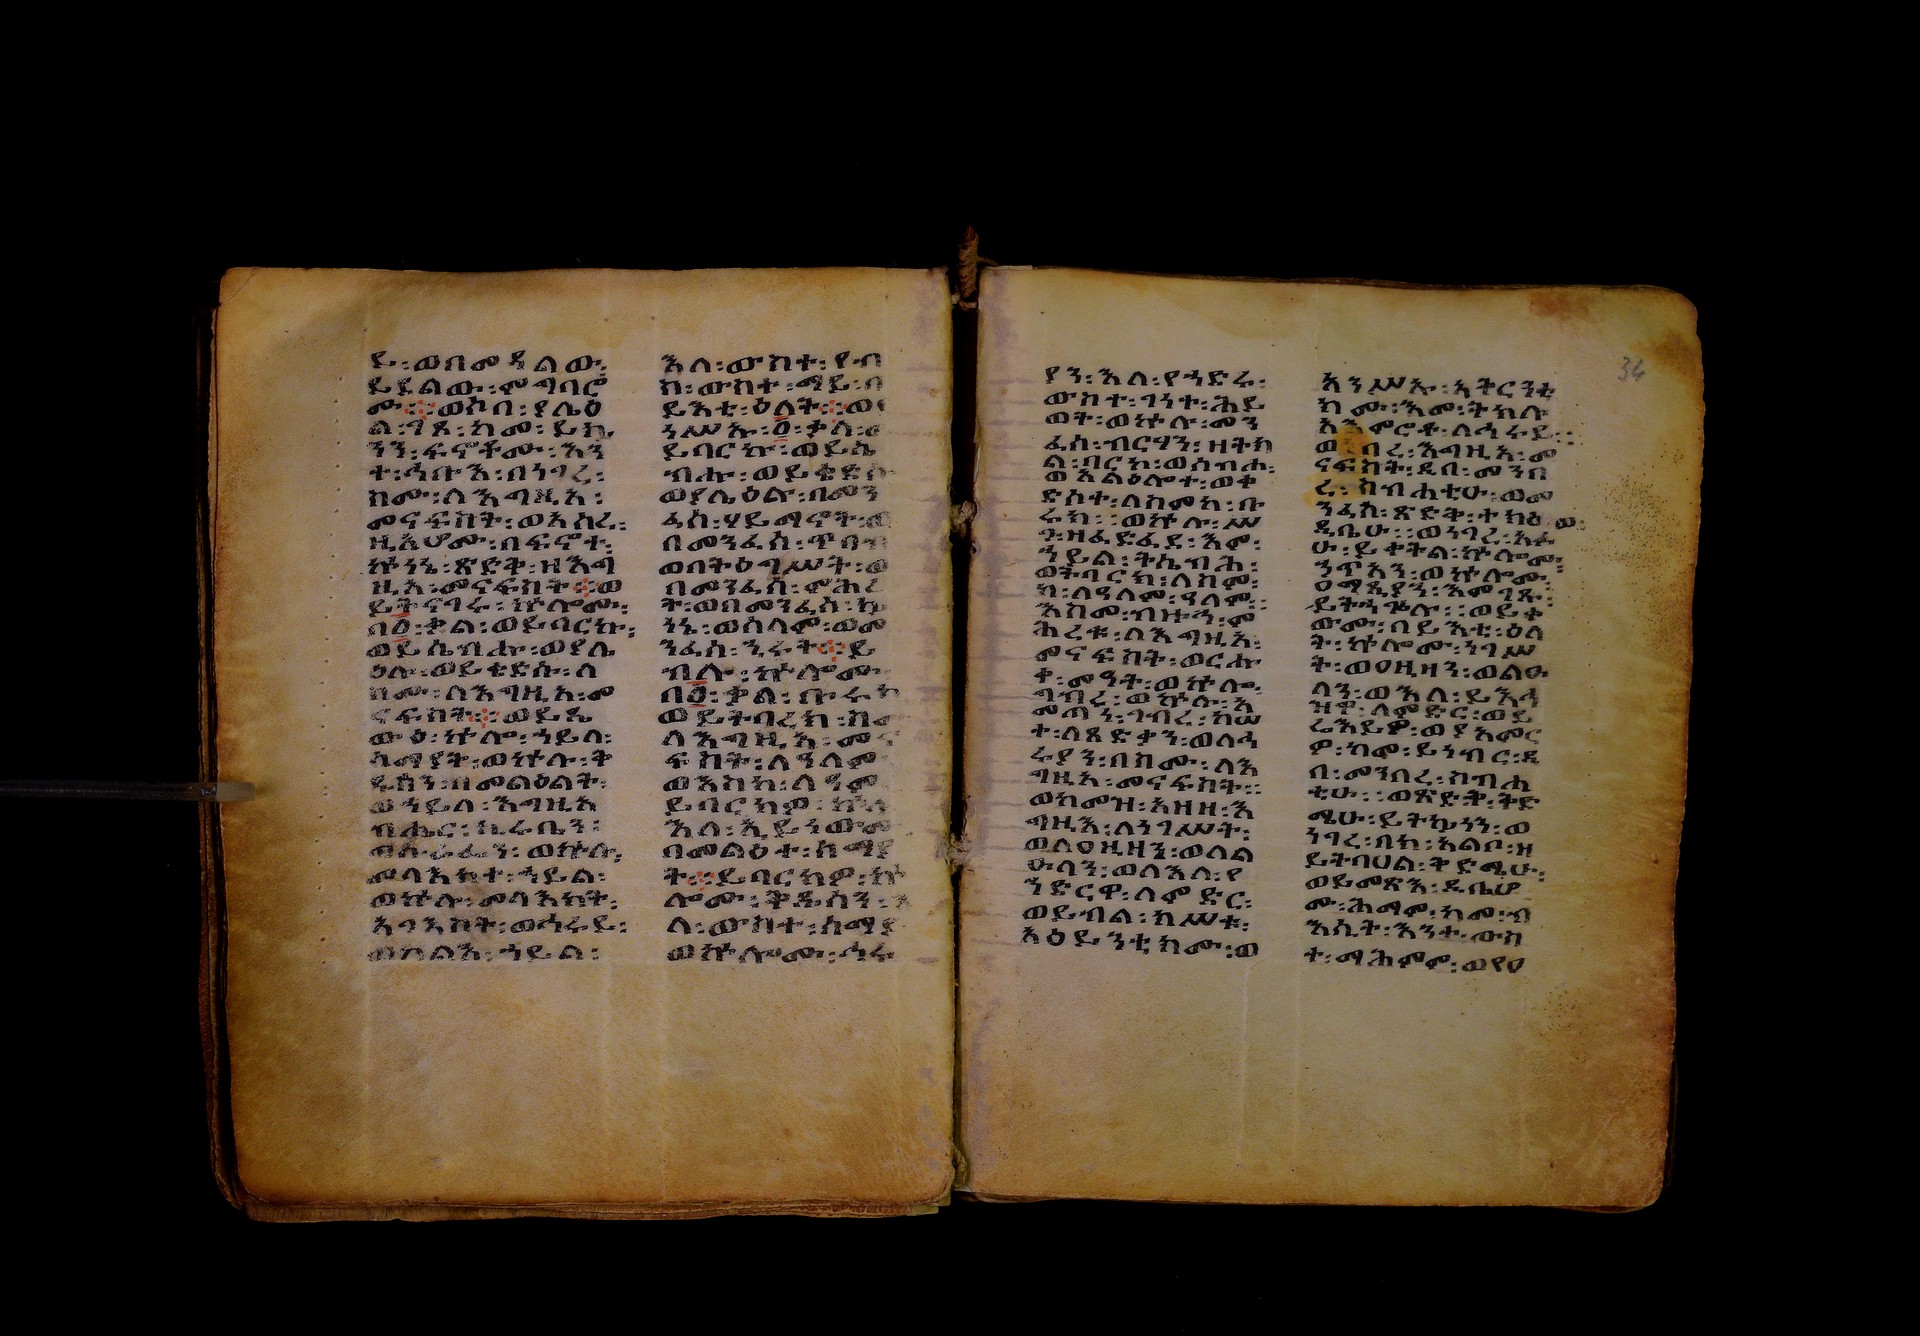 ይ፡ወበመዳልው፡
ይደልው፡ምግባሮ
ሙ፡፡ወሶበ፡ያሌዕ
ል፡ገጾ፡ከመ፡ይኰ
ንን፡ፍኖቶሙ፡እን
ተ፡ኅቡእ፡በነገረ፡
ስሙ፡ለእግዚአ፡
መናፍስት፡ወአሰረ፡
ዚአሆሙ፡በፍኖተ፡
ኵነኔ፡ጽድቅ፡ዘእግ
ዚአ፡መናፍስት፡፡ወ
ይትናገሩ፡ኵሎሙ፡
በ፩፡ቃል፡ወይባርኩ፡
ወይሴብሑ፡ወያሌ
ዕሉ፡ወይቄድሱ፡ለ
ስሙ፡ለእግዚአ፡መ
ናፍስት፡፡ወይጼ
ውዕ፡ኵሎ፡ኀይለ፡
ሰማያት፡ወኵሉ፡ቅ
ዱሰን፡በመልዕልት፡
ወኀይለ፡እግዚአ
ብሔር፡ኪሩቤን፡
ሱራፌን፡ወኵሉ፡
መላእክተ፡ኀይል፡
ወኵሉ፡መላእክት፡
አጋእስት፡ወኅሩይ፡
ወካልእ፡ኀይል፡
እለ፡ውስተ፡የብ
ስ፡ውስተ፡ማይ፡በ
ይእቲ፡ዕለት፡፡ወ
ንሥኡ፡፩፡ቃለ፡ወ
ይባርኩ፡ወይሴ
ብሑ፡ወይቄድሱ
ወያሌዕሉ፡በመን
ፈሰ፡ሃይማኖት፡ወ
በመንፈሰ፡ጥበብ
ወበትዕግሥት፡ወ
በመንፈሰ፡ምሕረ
ት፡ወበመንፈሰ፡ኵ
ነኔ፡ወሰላም፡ወመ
ንፈሰ፡ኂሩት፡፡ይ
ብሉ፡ኵሎሙ፡
በ፩፡ቃል፡ቡሩክ
ወይትባረክ፡ስመ
ለእግዚአ፡መና
ፍስት፡ለዓለም
ወእስከ፡ለዓለም
ይባርክዎ፡ኵሉ
እለ፡ኢይነውሙ
በመልዕልተ፡ሰማይ
ት፡፡ይባርክዎ፡ኵ
ሎሙ፡ቅዱሳን፡እ
ለ፡ውስተ፡ሰማይ
ወኵሎሙ፡ኅሩ
ያን፡እለ፡የኀድሩ፡
ውስተ፡ገነተ፡ሕይ
ወት፡ወኵሉ፡መን
ፈሰ፡ብርሃን፡ዘትክ
ል፡ባርኮ፡ወሰብሖ፡
ወአልዕሎተ፡ወቀ
ድሶተ፡ለስመከ፡ቡ
ሩክ፡፡ወኵሉ፡ሥ
ጋ፡ዘፈድፈደ፡እም፡
ኀይል፡ትሴብሕ፡
ወትባርክ፡ለስም፡
ከ፡ለዓለመ፡ዓለም፡፡
እስመ፡ብዙኅ፡ም
ሕረቱ፡ለእግዚአ፡
መናፍስት፡ወርሑ
ቀ፡መዓት፡ወኵሎ፡
ግብረ፡ወኵሉ፡አ
መጣነ፡ገብረ፡ከሠ
ተ፡ለጻድቃን፡ወለኅ
ሩያን፡በስሙ፡ለእ
ግዚአ፡መናፍስት፡፡
ወከመዝ፡አዘዘ፡እ
ግዚእ፡ለነገሥት፡
ወለዐዚዛን፡ወለል
ዑላን፡ወለእለ፡የ
ኀድርዋ፡ለምድር፡
ወይብል፡ክሥቱ፡
አዕይንቲክሙ፡ወ
አንሥኡ፡አቅርንቲ
ክሙ፡እመ፡ትክሉ
አእምሮቶ፡ለኅሩይ፡፡
ወነበረ፡እግዚአ፡መ
ናፍስት፡ዲበ፡መንበ
ረ፡ስብሐቲሁ፡ወመ
ንፈሰ፡ጽድቅ፡ተክዕወ፡
ዲቤሁ፡፡ወነገረ፡አፉ
ሁ፡ይቀትል፡ኵሎሙ፡
ኃጥኣን፡ወኵሎሙ፡
ዐማፂያን፡እምገጹ፡
ይትኀጐሉ፡፡ወይቀ
ውሙ፡በይእቲ፡ዕለ
ት፡ኵሎሙ፡ነገሥ
ት፡ወዐዚዛን፡ወልዑ
ላን፡ወእለ፡ይእኅ
ዝዋ፡ለምድር፡ወይ
ሬእይዎ፡ወያአምር
ዎ፡ከመ፡ይነብር፡ዲ
በ፡መንበረ፡ስብሐ
ቲሁ፡፡ወጽድቅ፡ቅድ
ሜሁ፡ይትኴነን፡ወ
ነገረ፡በከ፡አልቦ፡ዘ
ይትበሀል፡ቅድሜሁ፡
ወይመጽእ፡ዲቤሆ
ሙ፡ሕማም፡ከመ፡ብ
እሲት፡እንተ፡ውስ
ተ፡ማሕምም፡ወየዐ